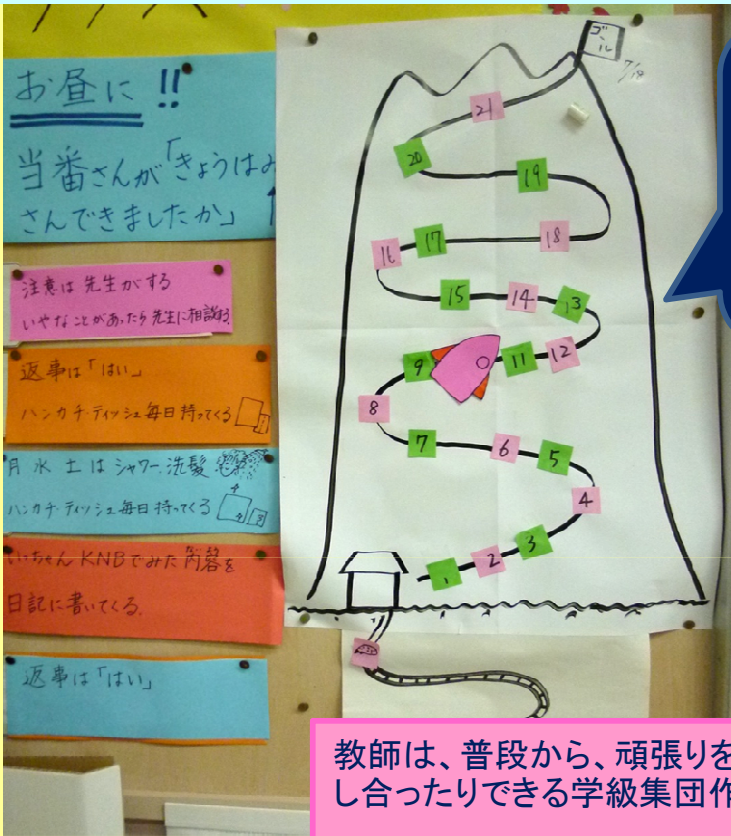 お昼に!!
当番さんが「きょうはみ
さんできましたか」
注意は先生がする
いやなことがあったら先生に相談する
返事は「はい」
ハンカチ・ティッシュ毎日持ってくる
月水土はシャワー、洗髪
ハンカチ・ティッシュ毎日持ってくる
いちゃん KNBでみた内容を
日記に書いてくる。
返事は「はい」
ゴール
7/18
21
20
19
18
17
16
15
14
13
12
11
9
8
7
6
5
4
3
2
1
教師は、普段から、頑張りを
し合ったりできる学級集団作